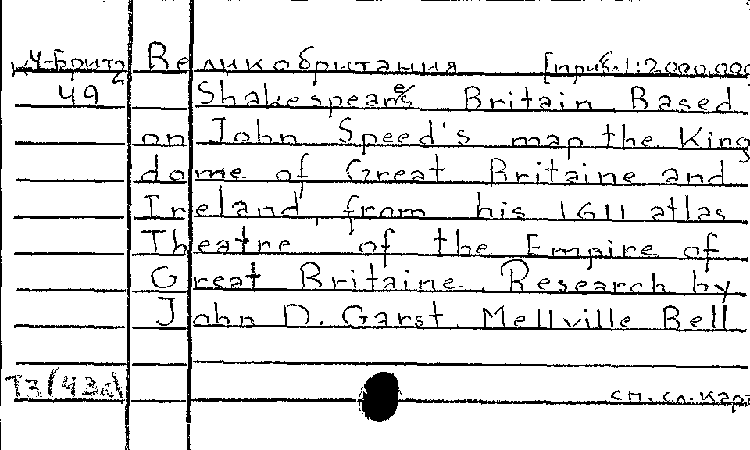 К4-Брит Великобритания [приб.1:2.000.000
49 Shakespeare's Britain. Based
on John Speed's map the King
dome of Great Britaine and
Ireland, from his 1611 atlas
Theatre of the Empire of
Great Britaine. Research by
John D. Garst. Mellville Bell
см. сл. карт